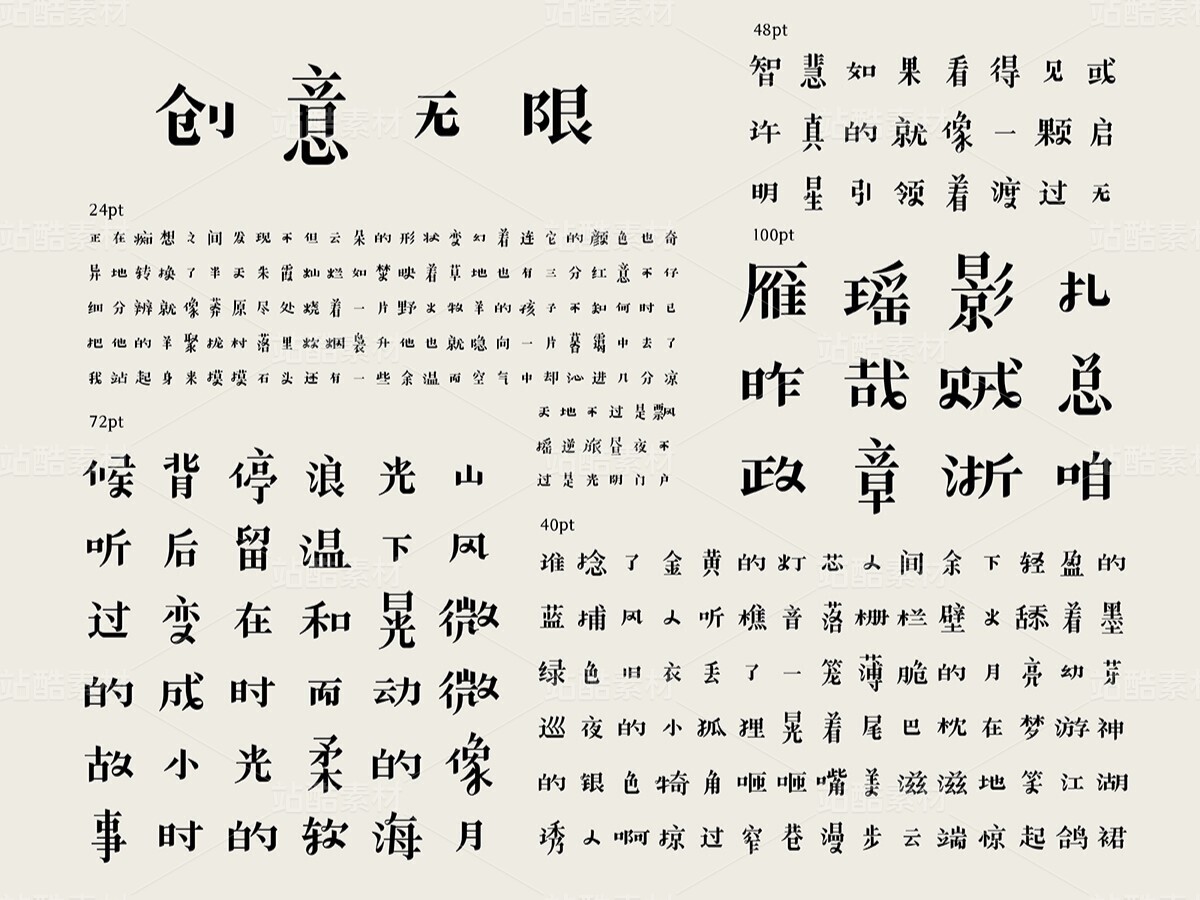 创意无限
24pt
正在痴想之间发现不但云朵的形状变幻着连它的颜色也奇
异地转换了半天朱霞灿烂如焚映着草地也有三分红意不仔
细分辨就像莽原尽处烧着一片野火牧羊的孩子不知何时已
把他的羊聚拢村落里炊烟袅升他也就隐向一片暮霭中去了
我站起身来摸摸石头还有一些余温而空气中却沁进几分凉
天地不过是飘风
摇逆旅昼夜不
过是光明门户
72pt
候背停浪光山
听后留温下风
过变在和晃微
的成时而动微
故小光柔的像
事时的软海月
48pt
智慧如果看得见或
许真的就像一颗启
明星引领着渡过无
100pt
雁瑶影扎
昨哉贼总
政章浙咱
40pt
谁捻了金黄的灯芯人间余下轻盈的
蓝捕风人听樵音落栅栏壁火舔着墨
绿色旧衣丢了一笼薄脆的月亮幼芽
巡夜的小狐狸晃着尾巴枕在梦游神
的银色犄角咂咂嘴美滋滋地笑江湖
诱人啊掠过窄巷漫步云端惊起鸽裙
站酷素材